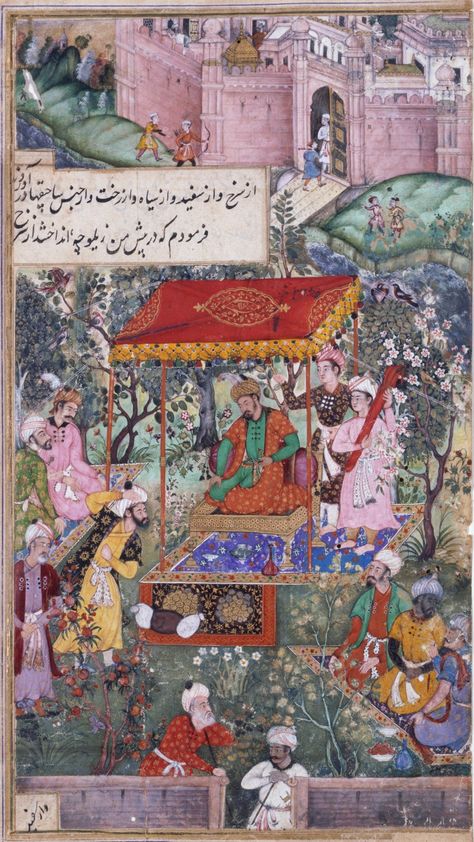 از سرخ و از سفید و از سیاه و از رخت و از جنس ساچقها در
فرمودم که در پیش من زیلوچه انداخته از سرخ